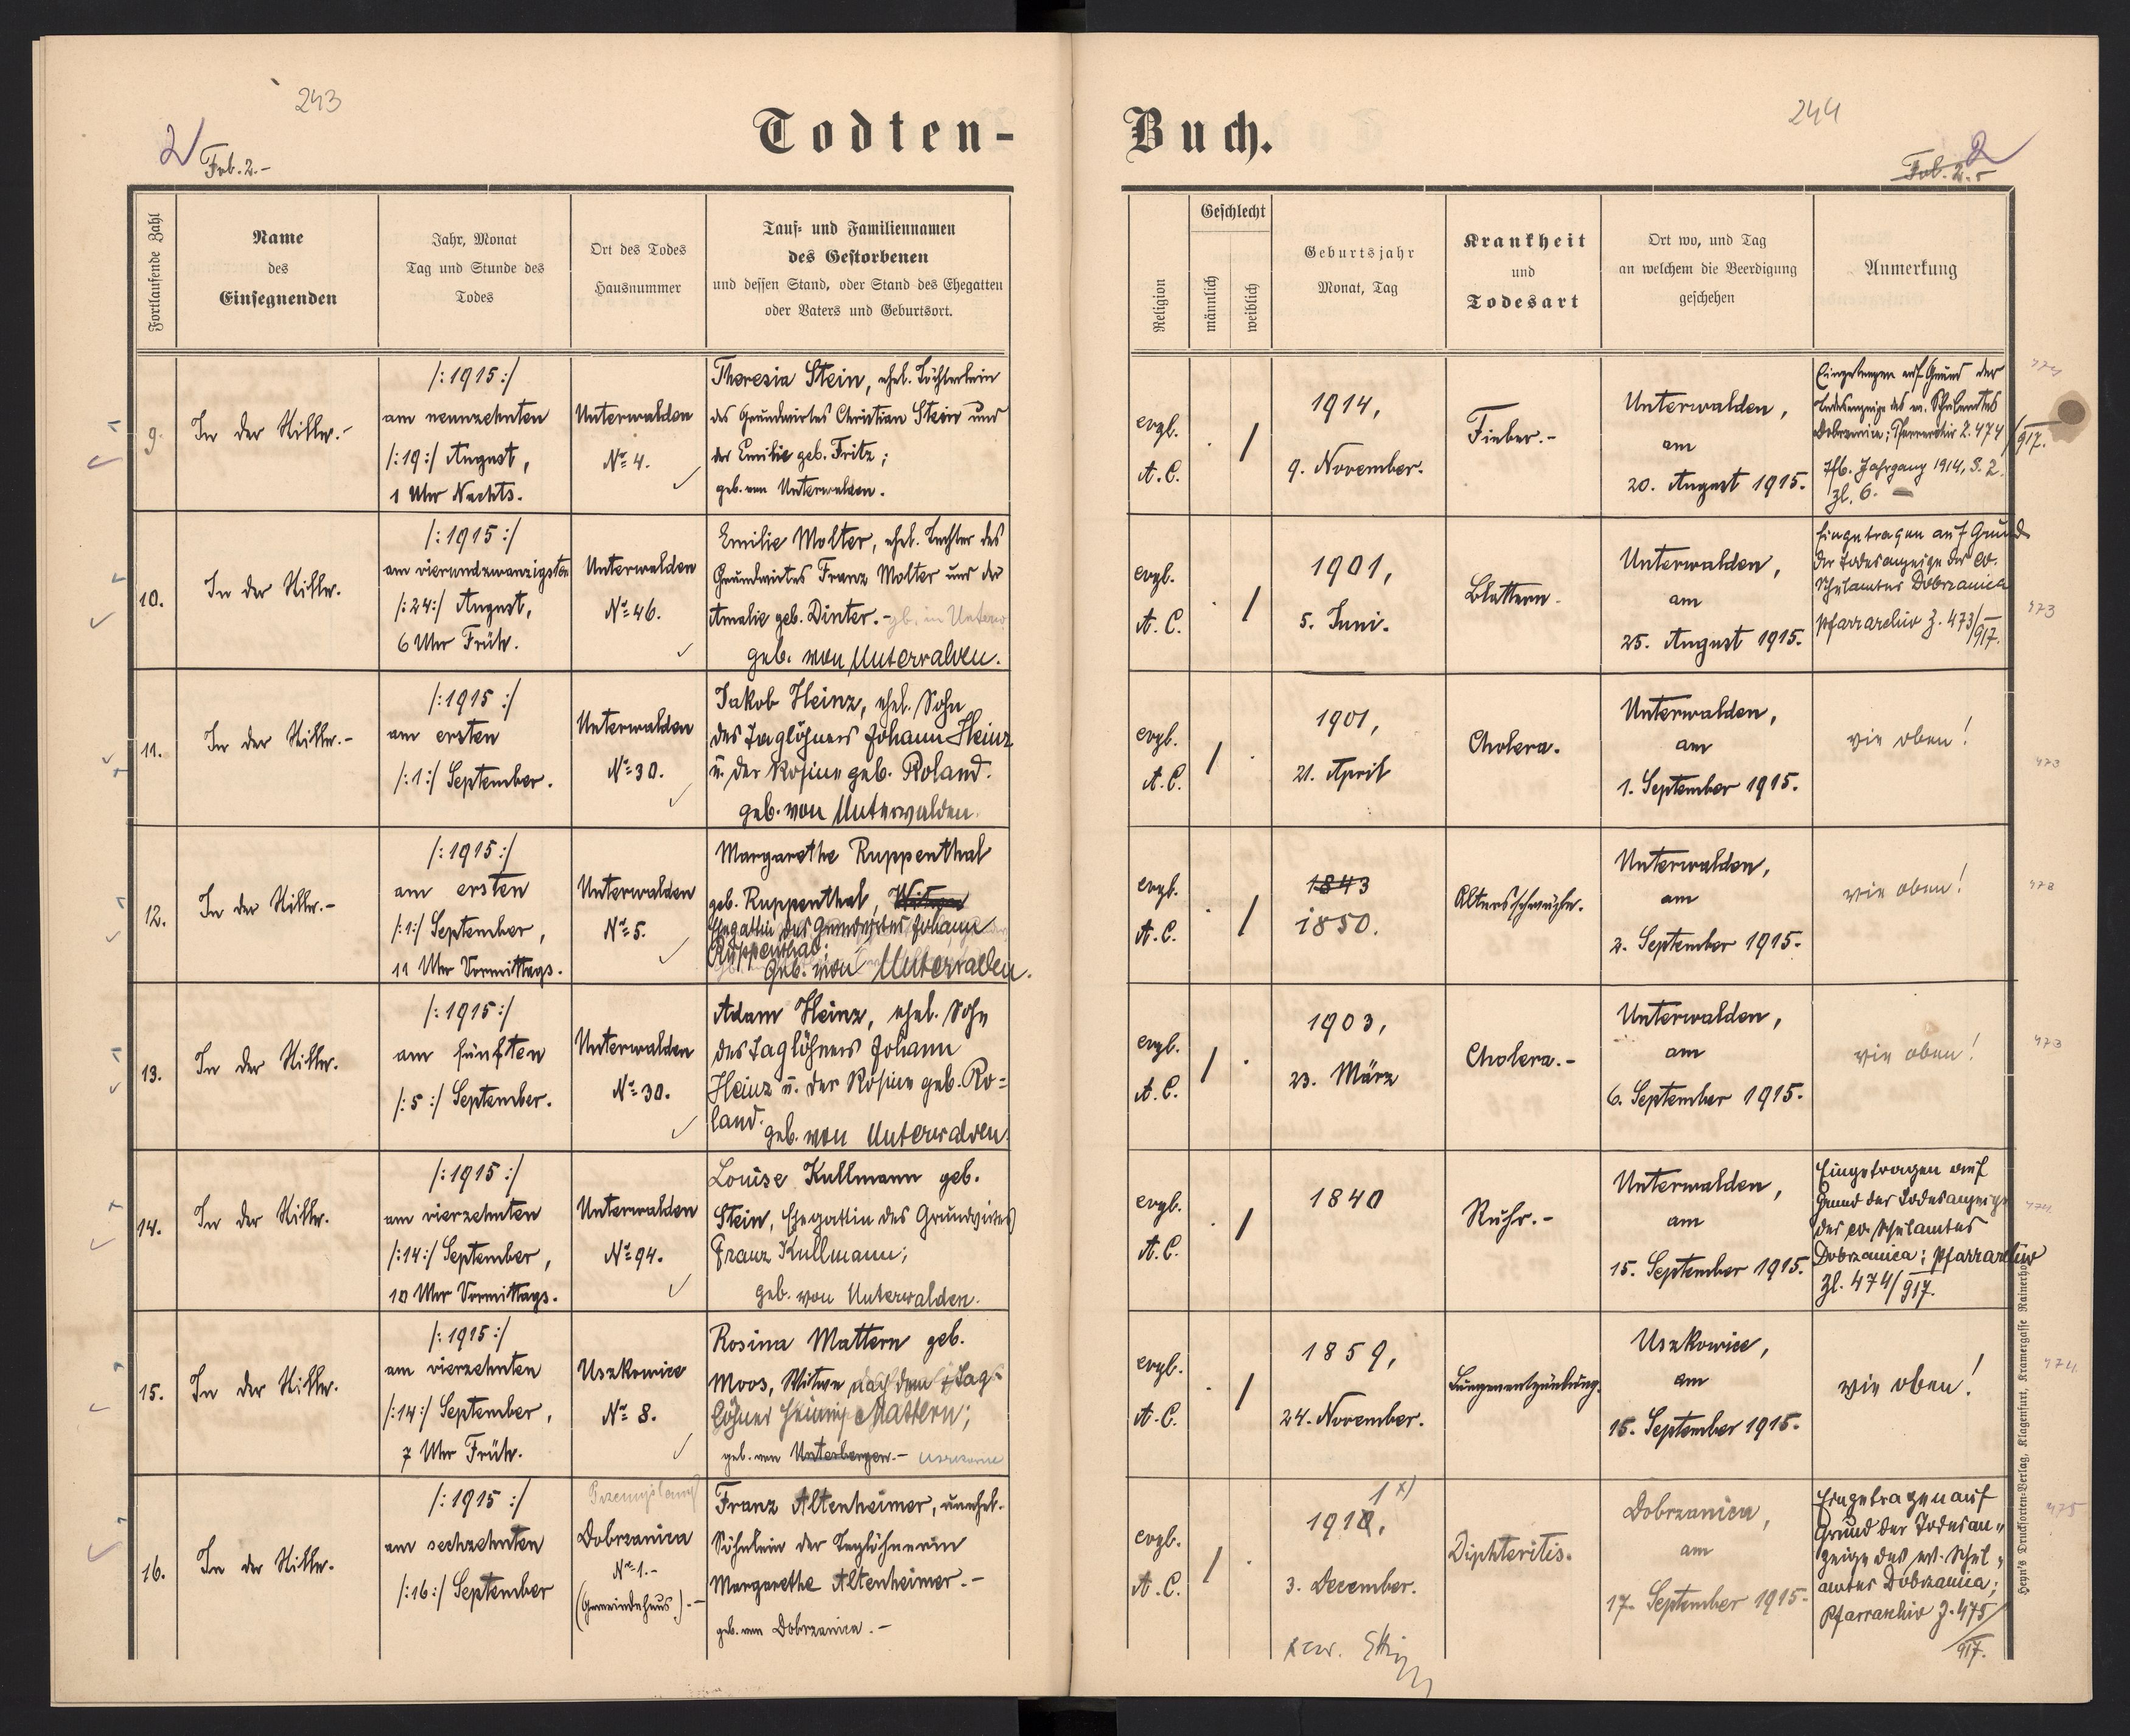 243
2
Fol. 2.-
Todten-
Fortlaufende Zahl
Name
des
Einsegnenden
Jahr, Monat
Tag und Stunde des
Todes
Ort des Todes
Hausnummer
Tauf- und Familiennamen
des Gestorbenen
und dessen Stand, oder Stand des Ehegatten
oder Vaters und Geburtsort.
9.
In der Stille.-
/:1915:/
am neunzehnten
/:19:/ August,
1 Uhr Nachts.
Unterwalden
No 4.
Theresia Stein, ehel. Töchterlein
des Grundwirtes Christian Stein und
der Emilie geb. Fritz;
geb. von Unterwalden.
10.
In der Stille.
/:1915:/
am vierundzwanzigsten
/:24:/ August,
6 Uhr Früh.
Unterwalden
No 46.
Emilie Molter, ehel. Tochter des
Grundwirtes Franz Molter und der
Amalie geb. Dinter.-
geb. von Unterwalden.
11.
In der Stille.-
/:1915:/
am ersten
/:1:/ September.
Unterwalden
No 30.
Jakob Heinz, ehel. Sohn
des Taglöhners Johann Heinz
u. der Rosine geb. Roland.
geb. von Unterwalden.
12.
In der Stille.-
/:1915:/
am ersten
/:1:/ September,
11 Uhr Vormittags.
Unterwalden
No 5.
Margarethe Ruppenthal
geb. Ruppenthal, Witwe
Ehegattin des Grundwirtes Johann
Ruppenthal;
geb. von Unterwalden.
13.
In der Stille.
/:1915:/
am fünften
/:5:/ September.
Unterwalden
No 30.
Adam Heinz, ehel. Sohn
des Taglöhners Johann
Heinz u. der Rosine geb. Ro=
land.
geb. von Unterwalden.
14.
In der Stille.
/:1915:/
am vierzehnten
/:14:/ September,
10 Uhr Vormittags.
Unterwalden
No 94.
Louise Kullmann geb.
Stein, Ehegattin des Grundwirtes
Franz Kullmann;
geb. von Unterwalden.
15.
In der Stille.
/:1915:/
am vierzehnten
/:14:/ September,
7 Uhr Früh.
Uszkowice
No 8.
Rosina Mattern geb.
Moos, Witwe nach dem + Tag-
löhner Mattern;
geb. von Unterbergen.-
16.
In der Stille.
/:1915:/
am sechzehnten
/:16:/ September
Dobrzanica
No 1.-
(Gemeindehaus).-
Franz Altenheimer, unehel.
Söhnlein der Taglöhnerin
Margarethe Altenheimer.-
geb. von Dobrzanica.-
244
2
Fol. 2.-
Buch.
Religion
Geschlecht
männlich
weiblich
Geburtsjahr
Monat, Tag
Krankheit
und
Todesart
Ort wo, und Tag
an welchem die Beerdigung
geschehen
Anmerkung
evgl.
A. C.
1914,
9. November.
Fieber.-
Unterwalden,
am
20. August 1915.
Eingetragen auf Grund der
Todesanzeige des ev. Schulamtes
Dobrzanica; Pfarrarchiv Z. 474/917.
Jahrgang 1914, S. 2.
Zl. 6.
474
evgl.
A. C.
1901,
5. Juni.
Blattern.
Unterwalden,
am
25. August 1915.
Eingetragen auf Grund
der Todesanzeige des ev.
Schulamtes Dobrzanica
Pfarrarchiv Z. 473/917.
473
evgl.
A. C.
1901,
21. April
Cholera.
Unterwalden,
am
1. September 1915.
wie oben!
473
evgl.
A. C.
1843
1850.
Altersschwäche.
Unterwalden,
am
2. September 1915.
wie oben!
473
evgl.
A. C.
1903,
23. März
Cholera.-
Unterwalden,
am
6. September 1915.
wie oben!
473
evgl.
A. C.
1840
Ruhr.-
Unterwalden,
am
15. September 1915.
Eingetragen auf
Grund der Todesanzeige
des ev. Schulamtes
Dobrzanica; Pfarrarchiv
Zl. 474/917.
474
evgl.
A. C.
1859,
24. November.
Lungenentzündung.
Uszkowice,
am
15. September 1915.
wie oben!
474
evgl.
A. C.
1 x)
1910,
3. December.
Diphteritis.
Dobrzanica,
am
17. September 1915.
Eingetragen auf
Grund der Todesan"
zeige des ev. Schul"
amtes Dobrzanica;
Pfarrarchiv Z. 475/917.
475
Heyn's Drucksorten-Verlag, Klagenfurt, Kramergasse Rainerhof